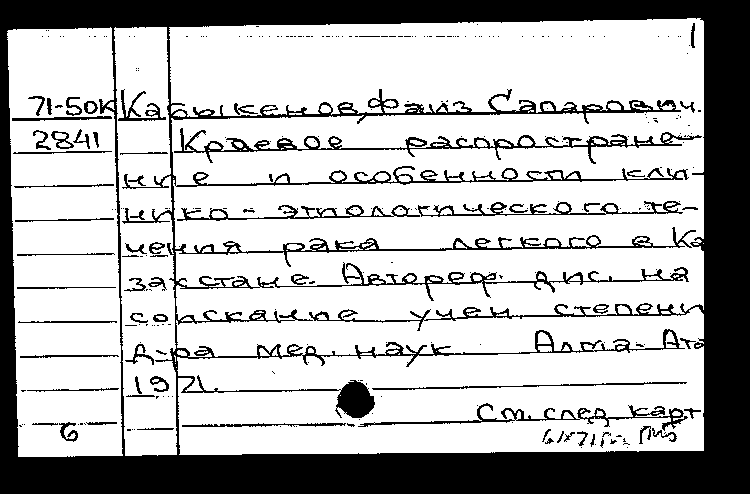 1
71-50к Кабыкенов, Фаиз Сапарович.
2841 Краевое распростране-
ние и особенности кли-
нико-этиологического те-
чения рака легкого в Ка
захстане. Автореф. дис. на
соискание учен. степени
д-ра мед. наук. Алма-Ата
1971.
См. след. карт.
6